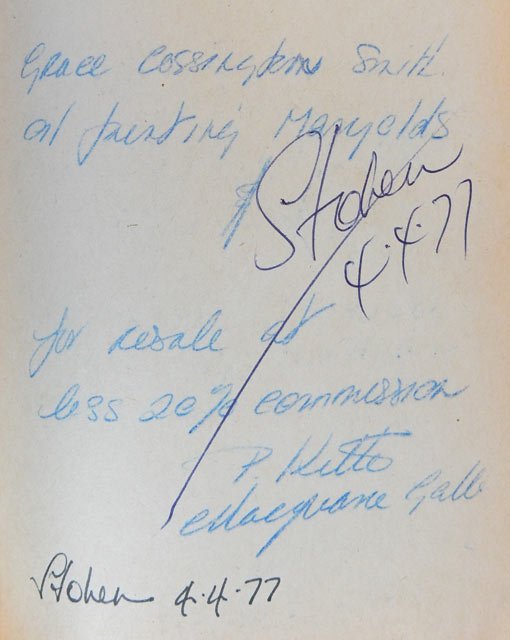 Grace Cossington Smith
oil painting Marigolds
Stolen
4.4.77
for resale at
less 20% commission
P. Kitto
Macquarie Galle
Stolen 4.4.77